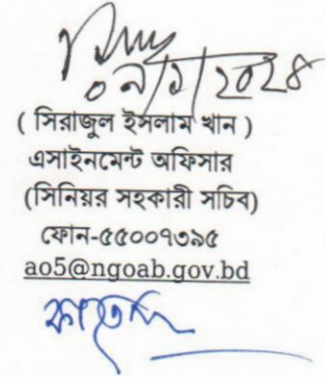 ০৯/১/২০২৪
( সিরাজুল ইসলাম খান )
এসাইনমেন্ট অফিসার
(সিনিয়র সহকারী সচিব)
ফোন-৫৫০০৭৩৯৫
ao5@ngoab.gov.bd